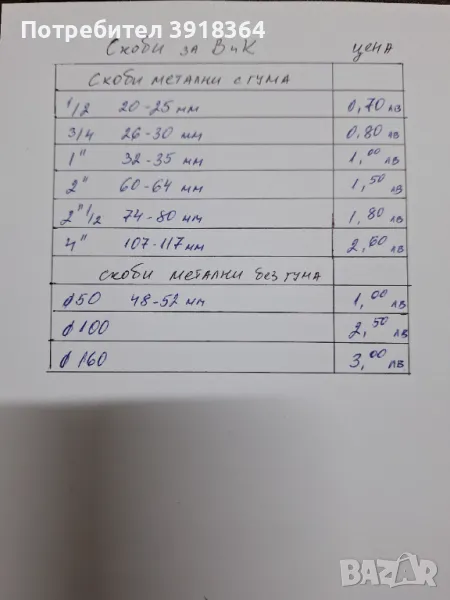 Потребител 3918364
Скоби за ВиК цена
Скоби метални с гума
1/2 20-25 мм 0,70 лв
3/4 26-30 мм 0,80 лв
1" 32-35 мм 1,00 лв
2" 60-64 мм 1,50 лв
2" 1/2 74-80 мм 1,80 лв
4" 107-117 мм 2,60 лв
скоби метални без гума
ф50 48-52 мм 1,00 лв
ф100 2,50 лв
ф160 3,00 лв
BAZAR